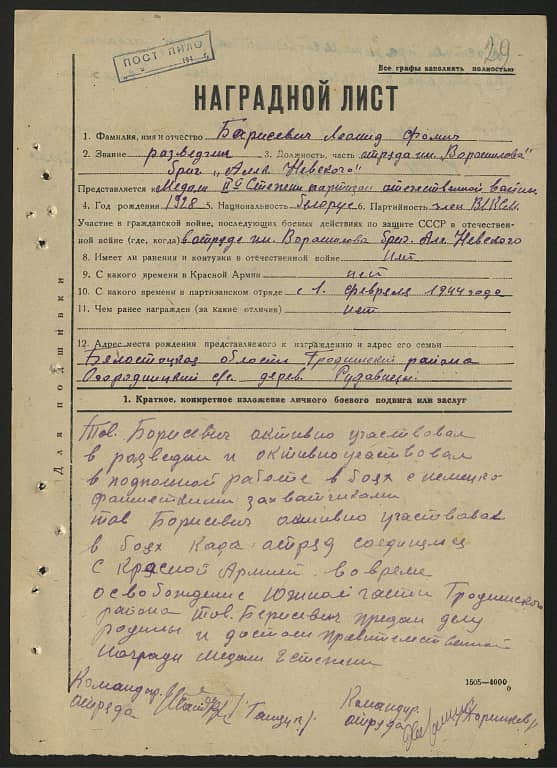 ПОСТУПИЛО
29
Все графы заполнять полностью
НАГРАДНОЙ ЛИСТ
1. Фамилия, имя и отчество Борисевич Леонид Фомич
2. Звание разведчик 3. Должность, часть отряда им. „Ворошилова"
бриг „Алек. Невского"
Представляется к Медали II й Степени партизан отечественной войны
4. Год рождения 1928 5. Национальность белорус 6. Партийность член ВЛКСМ
Участие в гражданской войне, последующих боевых действиях по защите СССР и отечествен-
ной войне (где, когда) в отряде им. Ворошилова бриг. Ал. Невского
8. Имеет ли ранения и контузии в отечественной войне нет
9. С какого времени в Красной Армии нет
10. С какого времени в партизанском отряде с 1. февраля 1944 года
11. Чем ранее награжден (за какие отличия) нет
12. Адрес места рождения представляемого к награждению и адрес его семьи
Белостоцкая области Гродненский района
с/с. дерев.
Для подшивки
1. Краткое, конкретное изложение личного боевого подвига или заслуг
Тов. Борисевич активно участвовал
в разведки и активно участвовал
в подполной работе в боях с немецко
фашисткими захватчиками
тов Борисевич активно участвовал
в боях када отряд соединился
с Красной Армией во время
освобождение Южной части Гроднинского
района Тов. Борисевич предан делу
родины и достоен правительственной
награди медали 2 степени
1505—4000
Командир. Командир.
отряда отряда